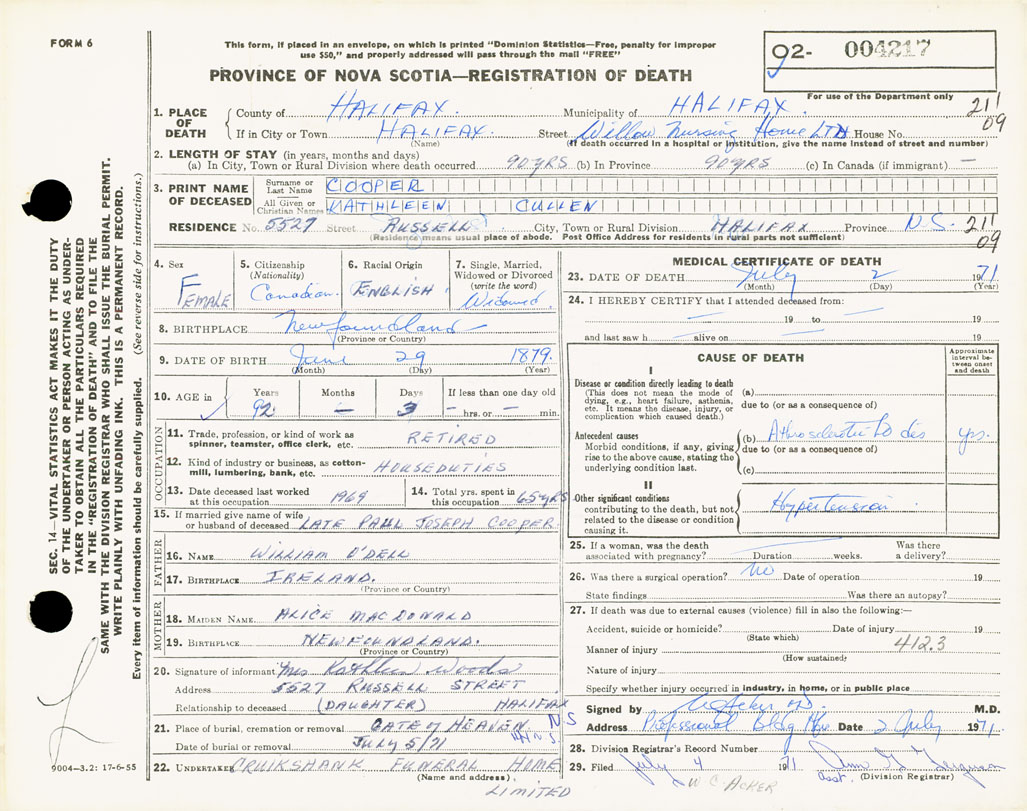 FORM 6
This form, if placed in an envelope, on which is printed "Dominion Statistics—Free, penalty for improper
use $50," and properly addressed will pass through the mail "FREE"
92- 004217
For use of the Department only
PROVINCE OF NOVA SCOTIA—REGISTRATION OF DEATH
211
09
1. PLACE OF DEATH
County of HALIFAX. Municipality of HALIFAX
If in City or Town HALIFAX. Street Willow Nursing Home LTD House No.
(Name) (If death occurred in a hospital or institution, give the name instead of street and number)
2. LENGTH OF STAY (in years, months and days)
(a) In City, Town or Rural Division where death occurred 90 YRS (b) In Province 90 YRS (c) In Canada (if immigrant) —
3. PRINT NAME OF DECEASED
Surname or Last Name COOPER
All Given or Christian Names KATHLEEN CULLEN
RESIDENCE No. 5527 Street RUSSELL City, Town or Rural Division HALIFAX Province N.S. 211
09
(Residence means usual place of abode. Post Office Address for residents in rural parts not sufficient)
4. Sex
FEMALE
5. Citizenship
(Nationality)
Canadian
6. Racial Origin
ENGLISH
7. Single, Married,
Widowed or Divorced
(write the word)
Widowed
8. BIRTHPLACE Newfoundland
(Province or Country)
9. DATE OF BIRTH June 29 1879
(Month) (Day) (Year)
10. AGE in
Years Months Days If less than one day old
92 — 3 — hrs. or — min.
OCCUPATION
11. Trade, profession, or kind of work as
spinner, teamster, office clerk, etc. RETIRED
12. Kind of industry or business, as cotton-
mill, lumbering, bank, etc. HOUSEDUTIES
13. Date deceased last worked
at this occupation 1969
14. Total yrs. spent in
this occupation 65 YRS
15. If married give name of wife
or husband of deceased LATE PAUL JOSEPH COOPER
FATHER
16. NAME WILLIAM O'DELL
17. BIRTHPLACE IRELAND.
(Province or Country)
MOTHER
18. MAIDEN NAME ALICE MACDONALD
19. BIRTHPLACE NEWFOUNDLAND.
(Province or Country)
20. Signature of informant Mrs Kathleen Woods
Address 5527 RUSSELL STREET
Relationship to deceased (DAUGHTER) HALIFAX
NS
21. Place of burial, cremation or removal GATE OF HEAVEN
Date of burial or removal July 5/71
22. UNDERTAKER CRUIKSHANK FUNERAL HOME
(Name and address)
LIMITED
MEDICAL CERTIFICATE OF DEATH
23. DATE OF DEATH July 2 1971
(Month) (Day) (Year)
24. I HEREBY CERTIFY that I attended deceased from:
— 19 to — 19
and last saw h — alive on 19
CAUSE OF DEATH
Approximate
interval be-
tween onset
and death
I
Disease or condition directly leading to death
(This does not mean the mode of
dying, e.g., heart failure, asthenia,
etc. It means the disease, injury, or
complication which caused death.)
(a)
due to (or as a consequence of)
Antecedent causes
Morbid conditions, if any, giving
rise to the above cause, stating the
underlying condition last.
(b) Athrosclerotic dis yrs.
due to (or as a consequence of)
(c)
II
Other significant conditions
contributing to the death, but not
related to the disease or condition
causing it.
Hypertension
25. If a woman, was the death
associated with pregnancy? Duration weeks. Was there
a delivery?
26. Was there a surgical operation? No Date of operation 19
State findings Was there an autopsy?
27. If death was due to external causes (violence) fill in also the following:—
Accident, suicide or homicide? Date of injury 19
(State which)
Manner of injury 412.3
(How sustained)
Nature of injury
Specify whether injury occurred in industry, in home, or in public place
Signed by WC Acker MD. M.D.
Address Professional Bldg Hfx Date 2 July 1971
28. Division Registrar's Record Number
29. Filed July 4 1971
Asst. (Division Registrar)
W C. ACKER
SEC. 14—VITAL STATISTICS ACT MAKES IT THE DUTY
OF THE UNDERTAKER OR PERSON ACTING AS UNDER-
TAKER TO OBTAIN ALL THE PARTICULARS REQUIRED
IN THE "REGISTRATION OF DEATH" AND TO FILE THE
SAME WITH THE DIVISION REGISTRAR WHO SHALL ISSUE THE BURIAL PERMIT.
WRITE PLAINLY WITH UNFADING INK. THIS IS A PERMANENT RECORD.
Every item of information should be carefully supplied. (See reverse side for instructions.)
9004—3.2: 17-6-55